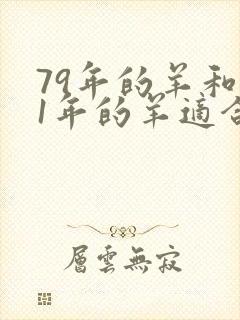 79年的羊和
1年的羊適合
層雲無寂